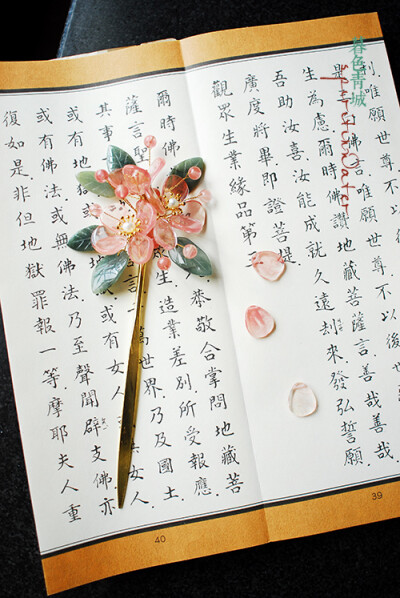 利.唯願世尊.不以
是 佛言.唯願世尊.不以後世
生為慮.爾時佛讚地藏菩薩言.善哉善哉.
吾助汝喜.汝能成就久遠劫來.發弘誓願.
廣度將畢.即證菩提.
觀眾生業緣品第三
爾時佛 恭敬合掌問地藏菩
薩言.聖 生.造業差別.所受報應.
其事 言 萬世界.乃及國土.
或有地獄 或有女人 女人.
或有佛法.或無佛法.乃至聲聞辟支佛.亦
復如是.非但地獄罪報一等.摩耶夫人重
39
40
暮色青城